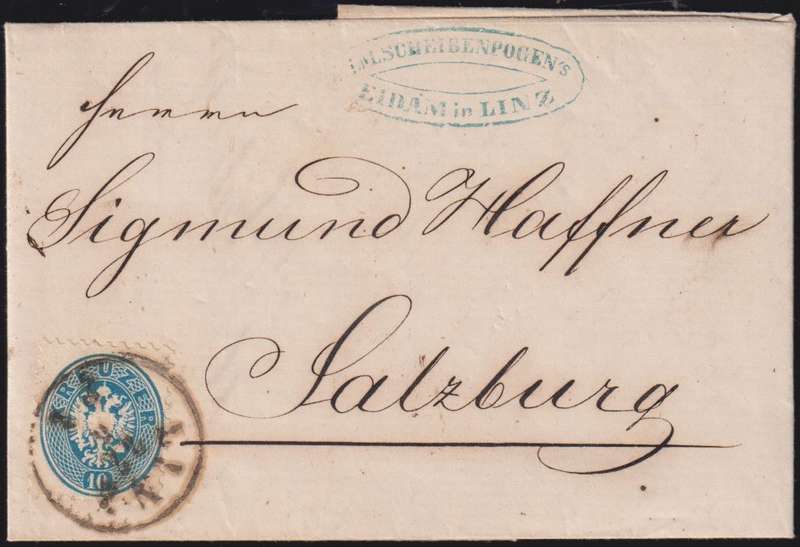 I.M.SCHEIBENPOGEN'S
EIDAM in LINZ
Herrn
Sigmund Haffner
Salzburg
KREUZER
10
LINZ